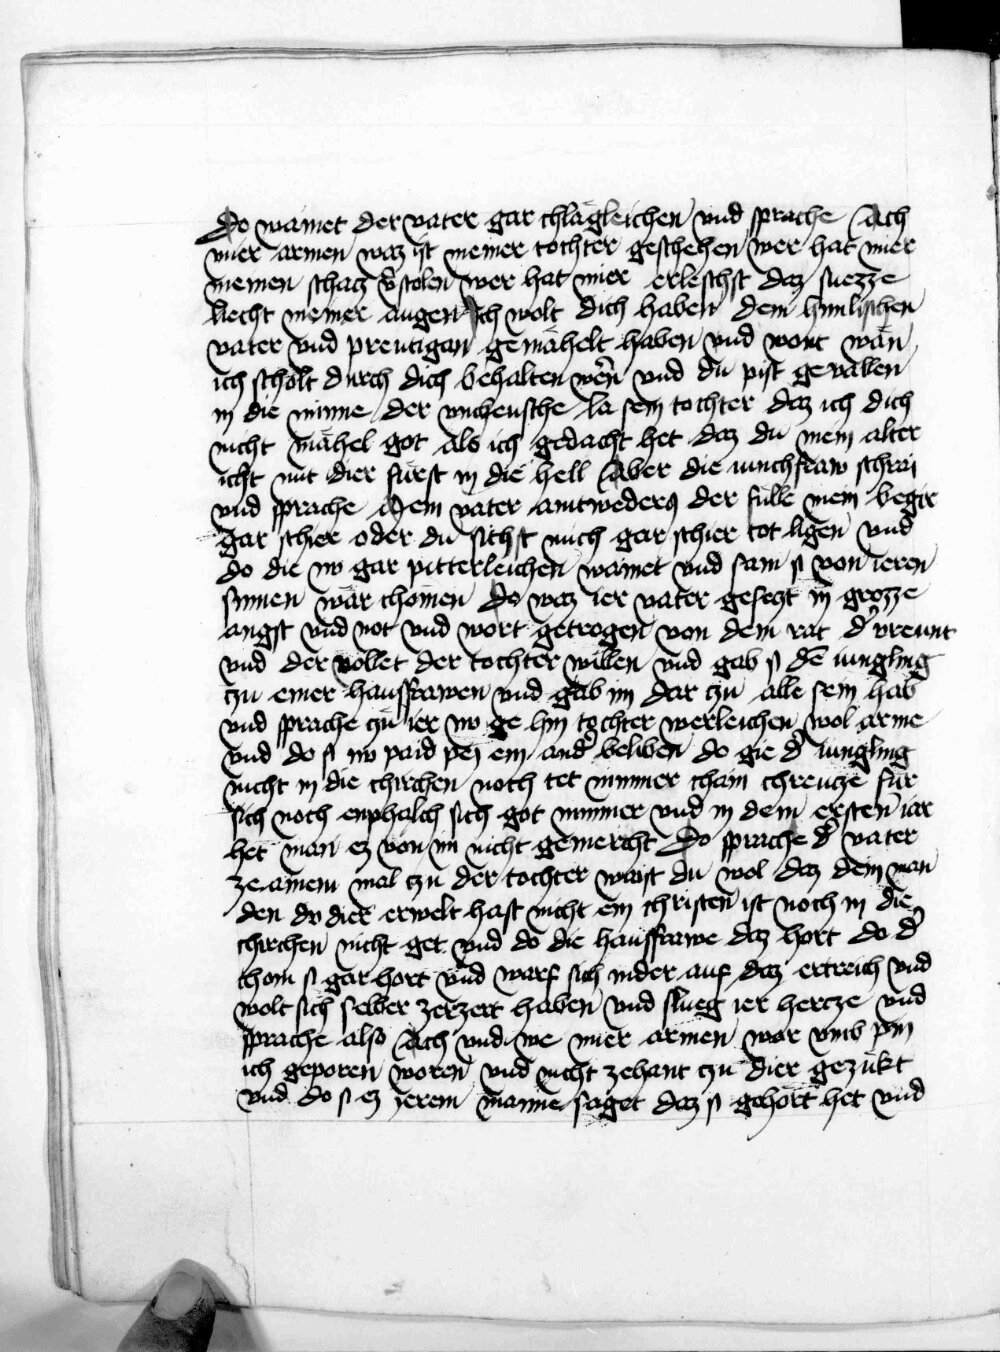 Do wainet der vater gar chlägleichen vnd sprache Ach
mier armen waz ist meiner tochter geschehen wer hat mier
meinen schacz v̓stolen wer hat mier erleschst daz suezze
liecht meiner augen Ich wolt dich haben dem himlischen
vater vnd preutigan gemähelt haben vnd wont wan
ich scholt durch dich behalten wern̄ vnd du pist gevallen
in die minne der vncheusche la sein tochter daz ich dich
nicht mähel got als ich gedacht het daz du mein alter
icht mit dier fürst in die hell Aber die iunchfraw schrai
vnd sprache Mein vater aintweders der fülle mein begir
gar schier oder du sichst mich gar schier tot ligen vnd
do die nv gar pitterleichen wainet vnd sam si von ieren
sinnen wär chomen Do waz ier vater gesetzt in grozze
angst vnd not vnd wort getrogen von dem rat d̓ vreunt
vnd der vollet der tochter willen vnd gab si dē iungling
czu einer hausfrawen vnd gab im dar czu alle sein hab
vnd sprache czu ier nv ge hin tochter werleichen wol arme
vnd do si nv paid pey ein and̓ beliben do gie d̓ iungling
nicht in die chirchen noch tet nimmer chain chreucze für
sich noch enphalch sich got nimmer vnd in dem ersten iar
het man ez von im nicht gemercht Do sprache d̓ vater
ze ainem mal czu der tochter waist du wol daz dein man
den dv dier erwelt hast nicht ein christen ist noch in die
chirchen nicht get vnd do die hausfrawe daz hort do d̓
chom si gar hort vnd warf sich nider auf daz ertreich vnd
wolt sich selber zerzert haben vnd slueg ier hercze vnd
sprache also Ach vnd we mier armen war vmb pin
ich geporen woren vnd nicht zehant czu dier gezukt
vnd do si ez ierem manne saget daz si gehört het vnd